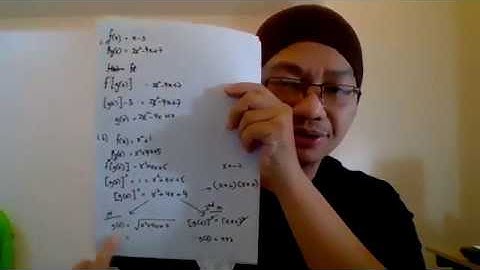 f(x) = x - 3
fg(x) = 2x² - 4x + 7
f[g(x)] = 2x² - 4x + 7
g(x) - 3 = 2x² - 4x + 7
g(x) = 2x² - 4x + 10
f(x) = x² + 1
fg(x) = x² + 4x + 5
f[g(x)] = x² + 4x + 5
[g(x)]² + 1 = x² + 4x + 5
[g(x)]² = x² + 4x + 4
→ (x+2)(x+2)
g(x) = √x² + 4x + 4
[g(x)]² = (x+2)²
=
g(x) = x+2